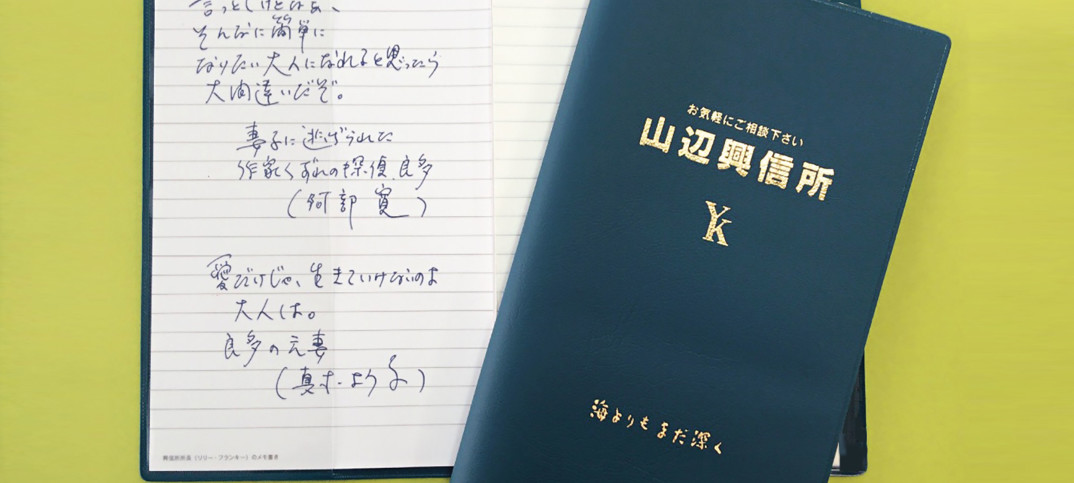 言っとくけどなぁ、
そんなに簡単に
なりたい大人になれると思ったら
大間違いだぞ。
妻子に逃げられた
作家くずれの探偵、良多
(阿部 寛)
愛だけじゃ、生きていけないのよ
大人は。
良多の元妻
(真木よう子)
興信所所長(リリー・フランキー)のメモ書き
お気軽にご相談下さい
山辺興信所
YK
海よりもまだ深く